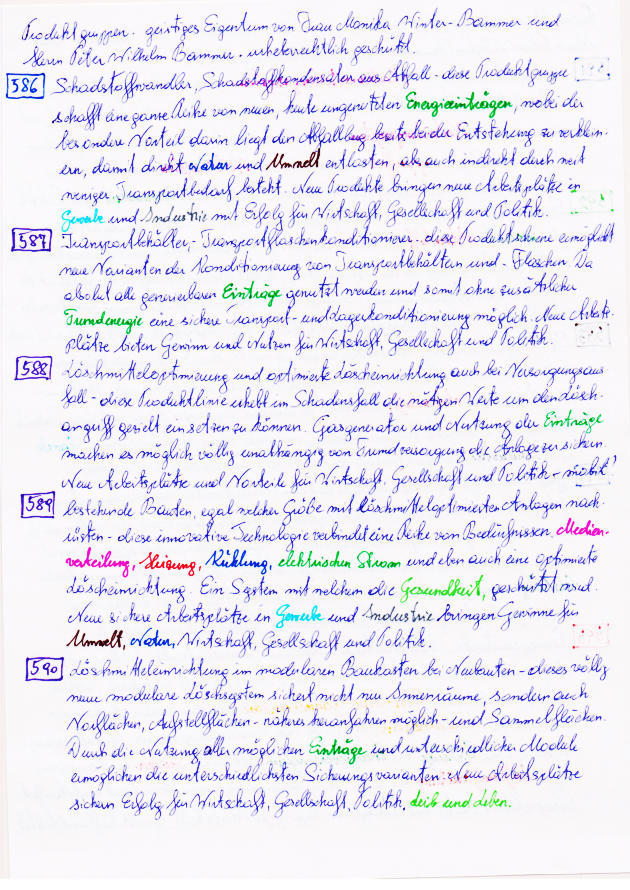 Produktgruppen - geistiges Eigentum von Frau Monika Winter-Bammer und
Herrn Peter Wilhelm Bammer - urheberrechtlich geschützt.
586 Schadstoffwandler, Schadstoffkondensaten aus Abfall - diese Produktgruppe
schafft eine ganze Reihe von neuen, heute ungenutzten Energieeinträgen, wobei der
besondere Vorteil darin liegt den Abfallberg bereits bei der Entstehung zu verklein-
ern, damit direkt Natur und Umwelt entlasten, als auch indirekt durch weit
weniger Transportbedarf besteht. Neue Produkte bringen neue Arbeitsplätze in
Gewerbe und Industrie mit Erfolg für Wirtschaft, Gesellschaft und Politik.
587 Transportbehälter-, Transportflaschenkonditionierer - diese Produktschiene ermöglicht
neue Varianten der Konditionierung von Transportbehältern und - Flaschen. Da
absolut alle generierbaren Einträge genutzt werden und somit ohne zusätzlicher
Fremdenergie eine sichere Transport- und Lagerkonditionierung möglich. Neue Arbeits-
plätze bieten Gewinn und Nutzen für Wirtschaft, Gesellschaft und Politik.
588 Löschmitteloptimierung und optimierte Löscheinrichtung auch bei Versorgungsaus
fall - diese Produktlinie erhebt im Schadensfall die nötigen Werte um den Lösch-
angriff gezielt einsetzen zu können. Gasgenerator und Nutzung der Einträge
machen es möglich völlig unabhängig von Fremdversorgung die Anlage zu sichern.
Neue Arbeitsplätze und Vorteile für Wirtschaft, Gesellschaft und Politik - mobil!
589 bestehende Bauten, egal welcher Größe mit löschmitteloptimierten Anlagen nach-
rüsten - diese innovative Technologie verbindet eine Reihe von Bedürfnissen, Medien-
verteilung, Heizung, Kühlung, elektrischen Strom und eben auch eine optimierte
Löscheinrichtung. Ein System mit welchem die Gesundheit, geschützt wird.
Neue sichere Arbeitsplätze in Gewerbe und Industrie bringen Gewinne für
Umwelt, Natur, Wirtschaft, Gesellschaft und Politik.
590 Löschmitteleinrichtung im modularen Baukasten bei Neubauten - dieses völlig
neue modulare Löschsystem sichert nicht nur Innenräume, sondern auch
Vorflächen, Aufstellflächen - näheres heranfahren möglich - und Sammelflächen.
Durch die Nutzung aller möglichen Einträge und unterschiedlicher Module
ermöglichen die unterschiedlichsten Sicherungsvarianten. Neue Arbeitsplätze
sichern Erfolg für Wirtschaft, Gesellschaft, Politik, Leib und Leben.